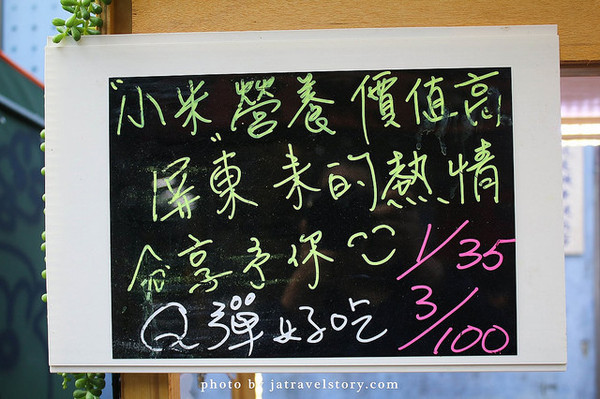 "小米"營養價值高
屏東来的熱情
分享予你 1/35
Q彈好吃 3/100
photo by jatravelstory.com